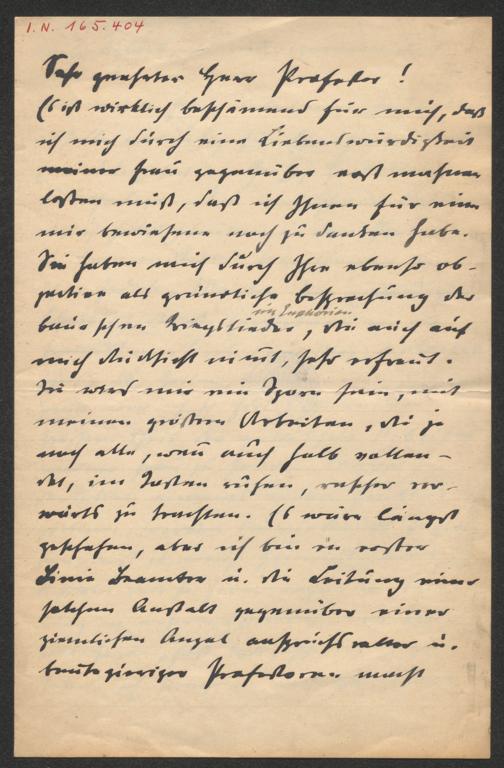 I.N. 165.404
Sehr geehrter Herr Professor!
Es ist wirklich beschämend für mich, daß
ich mich durch eine Liebenswürdigkeit
meiner Frau gegenüber erst mahnen
lassen muß, daß ich Ihnen für eine
mir bewiesene noch zu danken habe.
Sie haben mich durch Ihre ebenso ob-
jective als gründliche Besprechung der
im Euphorion
Kriegslieder, die auch auf
mich Rücksicht nimt, sehr erfreut.
Sie wird mir ein Sporn sein, mit
meinen größern Arbeiten, die ja
noch alle, wenn auch halb vollen-
det, im Kasten ruhen, rascher vor-
wärts zu trachten. Es wäre längst
geschehen, aber ich bin in erster
Linie Beamter u. die Leitung einer
solchen Anstalt gegenüber einer
ziemlichen Anzal anspruchsvoller u.
Professoren macht